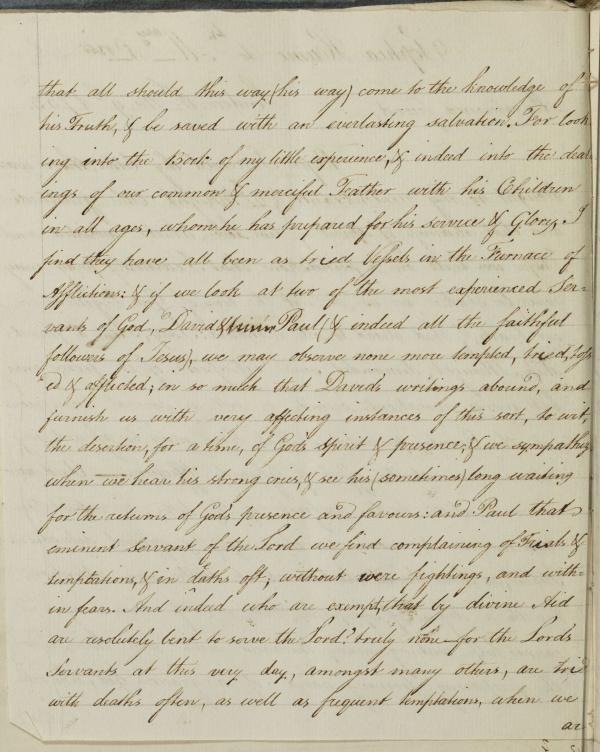 that all should this way (his way) come to the knowledge of
his Truth, & be saved with an everlasting salvation. For look
ing into the Book of my little experience, & indeed into the deal
ings of our common & merciful Father with his Children
in all ages, whom he has prepared for his service & Glory, I
find they have all been as tried Vessels in the Furnace of
Afflictions: & if we look at two of the most experienced Ser-
vants of God, David & Paul (& indeed all the faithful
followers of Jesus), we may observe none more tempted, tried, toss
'd & afflicted; in so much that David's writings abound, and
furnish us with very affecting instances of this sort, to wit,
the desertion, for a time, of God's spirit & presence, & we sympathize
when we hear his strong cries, & see his (sometimes) long waiting
for the returns of God's presence and favours: and Paul that
eminent servant of the Lord we find complaining of Trials &
temptations, & in deaths oft, without were fightings, and with-
in fears. And indeed who are exempt, that by divine Aid
are resolutely bent to serve the Lord? truly none – for the Lord's
Servants at this very day, amongst many others, are trie
with deaths often, as well as frequent temptations, when we
ar